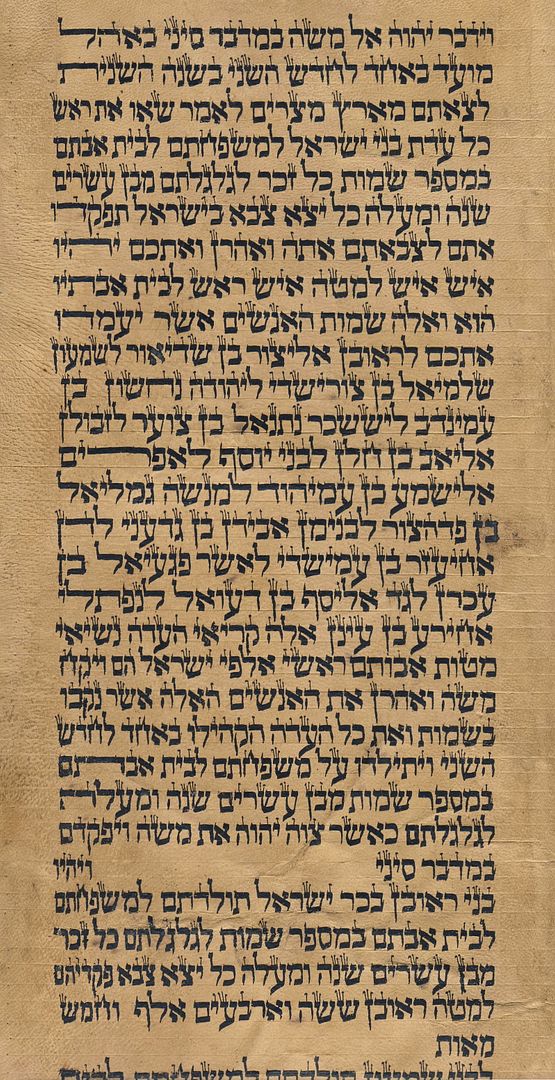 וידבר יהוה אל משה במדבר סיני באהל
מועד באחד לחדש השני בשנה השנית
לצאתם מארץ מצרים לאמר שאו את ראש
כל עדת בני ישראל למשפחתם לבית אבתם
במספר שמות כל זכר לגלגלתם מבן עשרים
שנה ומעלה כל יצא צבא בישראל תפקדו
אתם לצבאתם אתה ואהרן ואתכם יהיו
איש איש למטה איש ראש לבית אבתיו
הוא ואלה שמות האנשים אשר יעמדו
אתכם לראובן אליצור בן שדיאור לשמעון
שלמיאל בן צורישדי ליהודה נחשון בן
עמינדב ליששכר נתנאל בן צוער לזבולן
אליאב בן חלן לבני יוסף לאפרים
אלישמע בן עמיהוד למנשה גמליאל
בן פדהצור לבנימן אבידן בן גדעני לדן
אחיעזר בן עמישדי לאשר פגעיאל בן
עכרן לגד אליסף בן דעואל לנפתלי
אחירע בן עינן אלה קריאי העדה נשיאי
מטות אבותם ראשי אלפי ישראל הם ויקח
משה ואהרן את האנשים האלה אשר נקבו
בשמות ואת כל העדה הקהילו באחד לחדש
השני ויתילדו על משפחתם לבית אבתם
במספר שמות מבן עשרים שנה ומעלה
לגלגלתם כאשר צוה יהוה את משה ויפקדם
במדבר סיני ויהיו
בני ראובן בכר ישראל תולדתם למשפחתם
לבית אבתם במספר שמות לגלגלתם כל זכר
מבן עשרים שנה ומעלה כל יצא צבא פקדיהם
למטה ראובן ששה וארבעים אלף וחמש
מאות
לבני שמעון תולדתם למשפחתם לבית